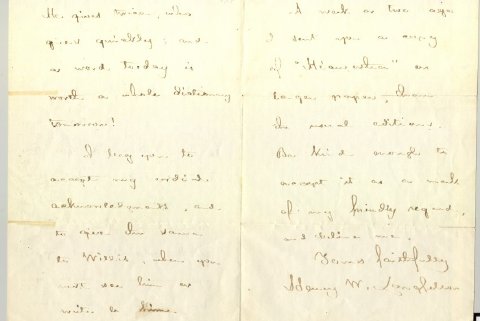 He gives twice, who
gives quickly; and
a word today is
worth a whole Dictionary
tomorrow!
I beg you to
accept my cordial
acknowledgments, and
to give the same
to Willis, when you
next see him or
write to him.
A week or two ago
I sent you a copy
of "Hiawatha" on
larger paper, than
the usual editions.
Be kind enough to
accept it as a mark
of my friendly regard,
and believe me,
Yours faithfully
Henry W. Longfellow